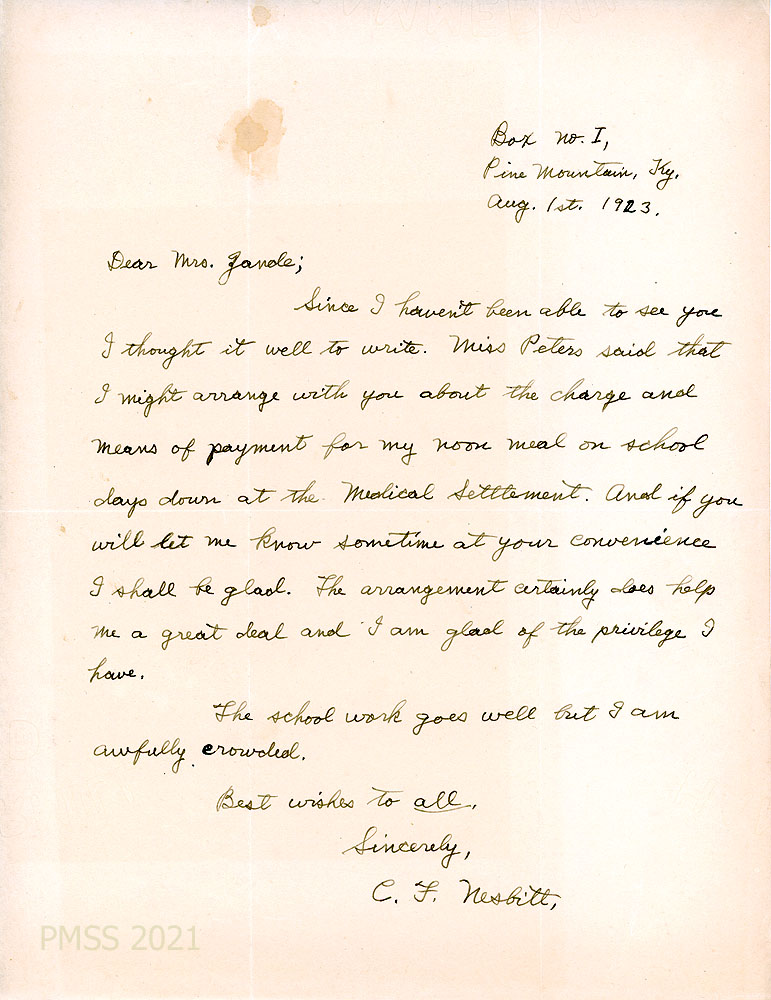 Box No. I,
Pine Mountain, Ky.
Aug. 1st. 1923.
Dear Mrs. Zande;
Since I haven't been able to see you
I thought it well to write. Miss Peters said that
I might arrange with you about the charge and
means of payment for my noon meal on school
days down at the Medical Setttement. And if you
will let me know sometime at your convenience
I shall be glad. The arrangement certainly does help
me a great deal and I am glad of the privilege I
have.
The school work goes well but I am
awfully crowded.
Best wishes to all.
Sincerely,
C. F. Nesbitt,
PMSS 2021